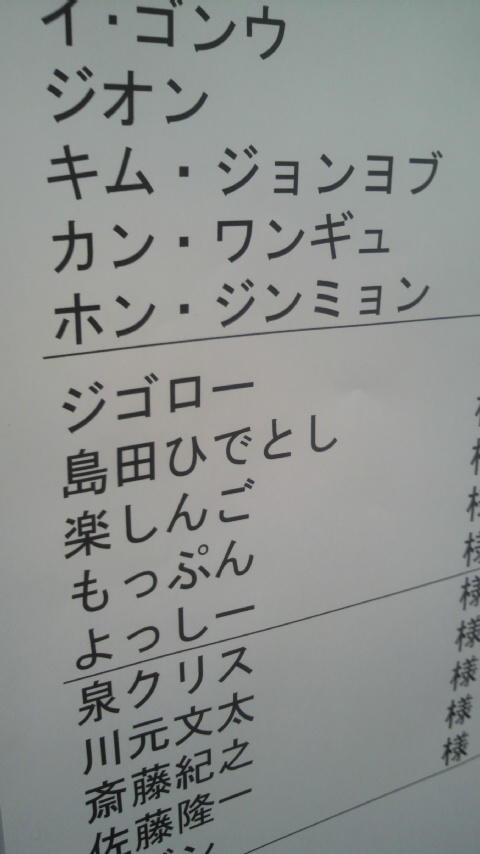 イ・ゴンウ
ジオン
キム・ジョンヨブ
カン・ワンギュ
ホン・ジンミョン
ジゴロー
島田ひでとし
楽しんご
もっぷん
よっしー
泉クリス 様
川元文太 様
斎藤紀之 様
佐藤隆一 様